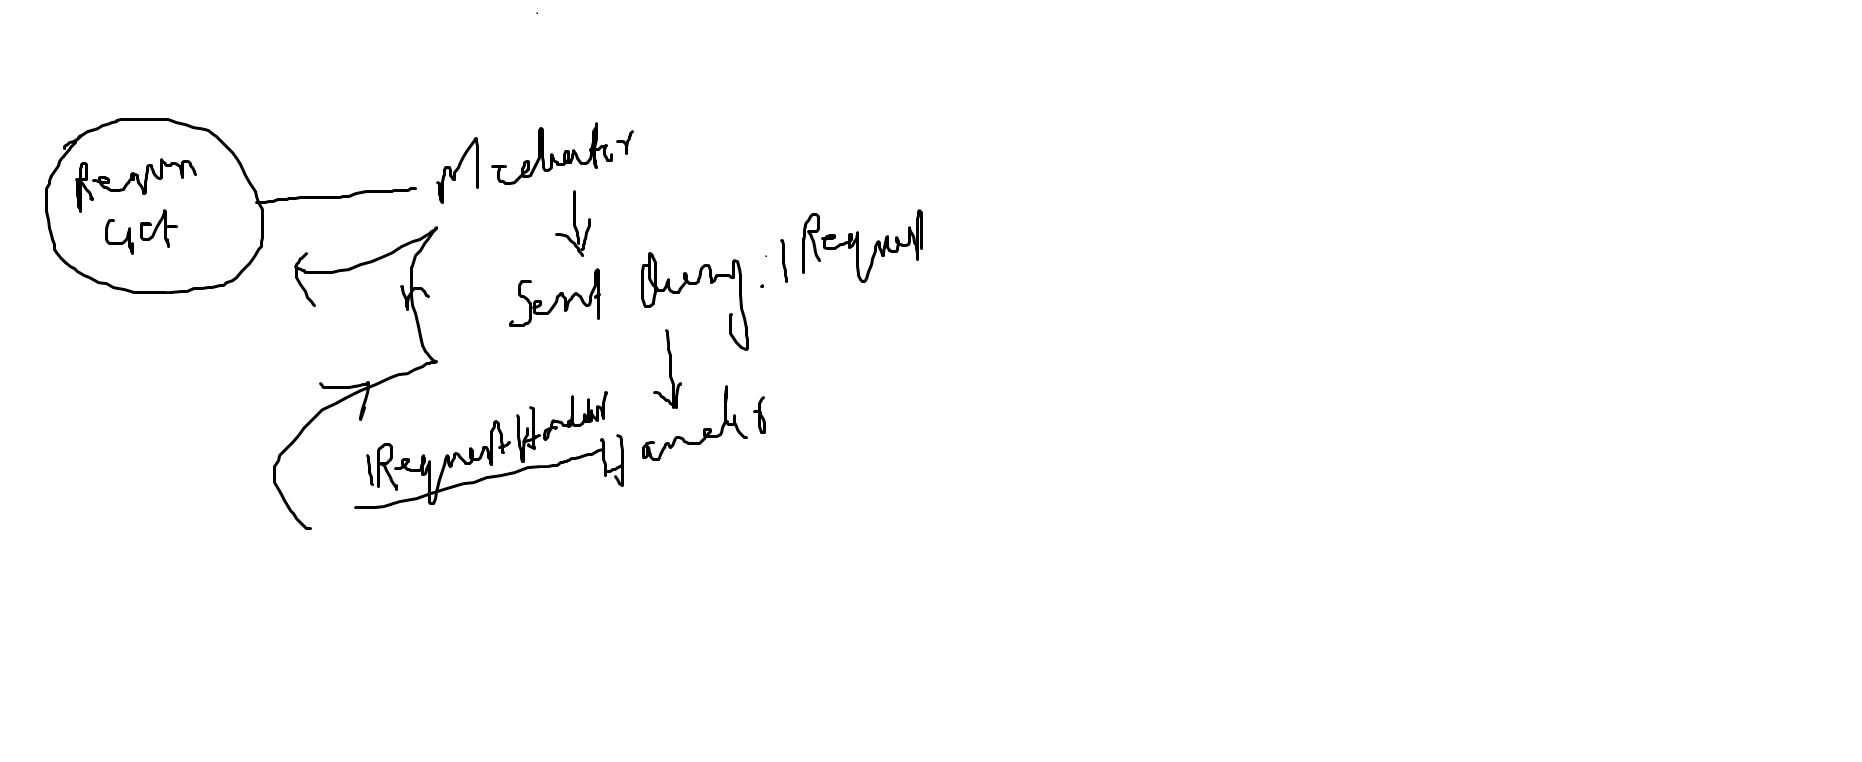 Request
Get
Mediator
Send Query : IRequest
IRequestHandler
Handler